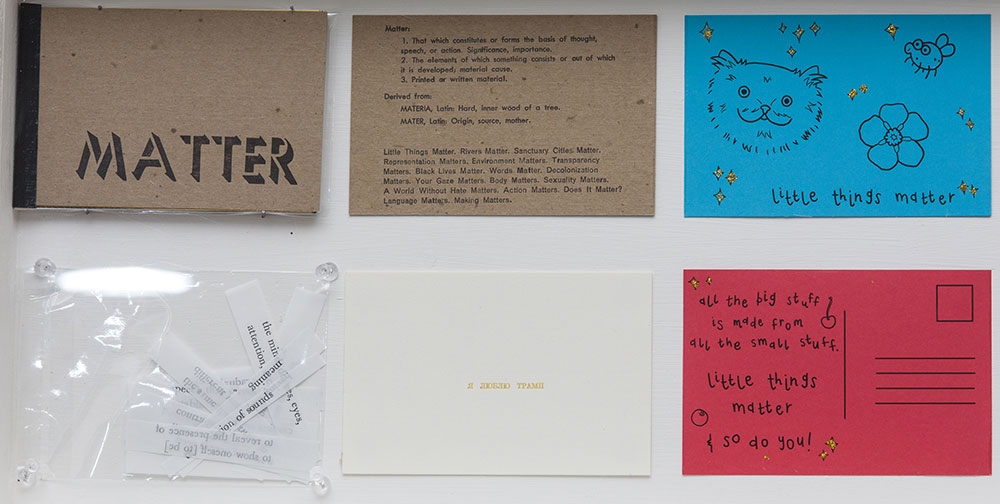 MATTER
Matter:
1. That which constitutes or forms the basis of thought,
speech, or action. Significance, importance.
2. The elements of which something consists or out of which
it is developed; material cause.
3. Printed or written material.
Derived from:
MATERIA, Latin: Hard, inner wood of a tree.
MATER, Latin: Origin, source, mother.
Little Things Matter. Rivers Matter. Sanctuary Cities Matter.
Representation Matters. Environment Matters. Transparency
Matters. Black Lives Matter. Words Matter. Decolonization
Matters. Your Gaze Matters. Body Matters. Sexuality Matters.
A World Without Hate Matters. Action Matters. Does It Matter?
Language Matters. Making Matters.
little things matter
the
attention,
meaning
eyes,
of sounds
to reveal the presence of
to show oneself [to be]
Я ЛЮБЛЮ ТРАМП
all the big stuff
is made from
all the small stuff.
little things
matter
& so do you!